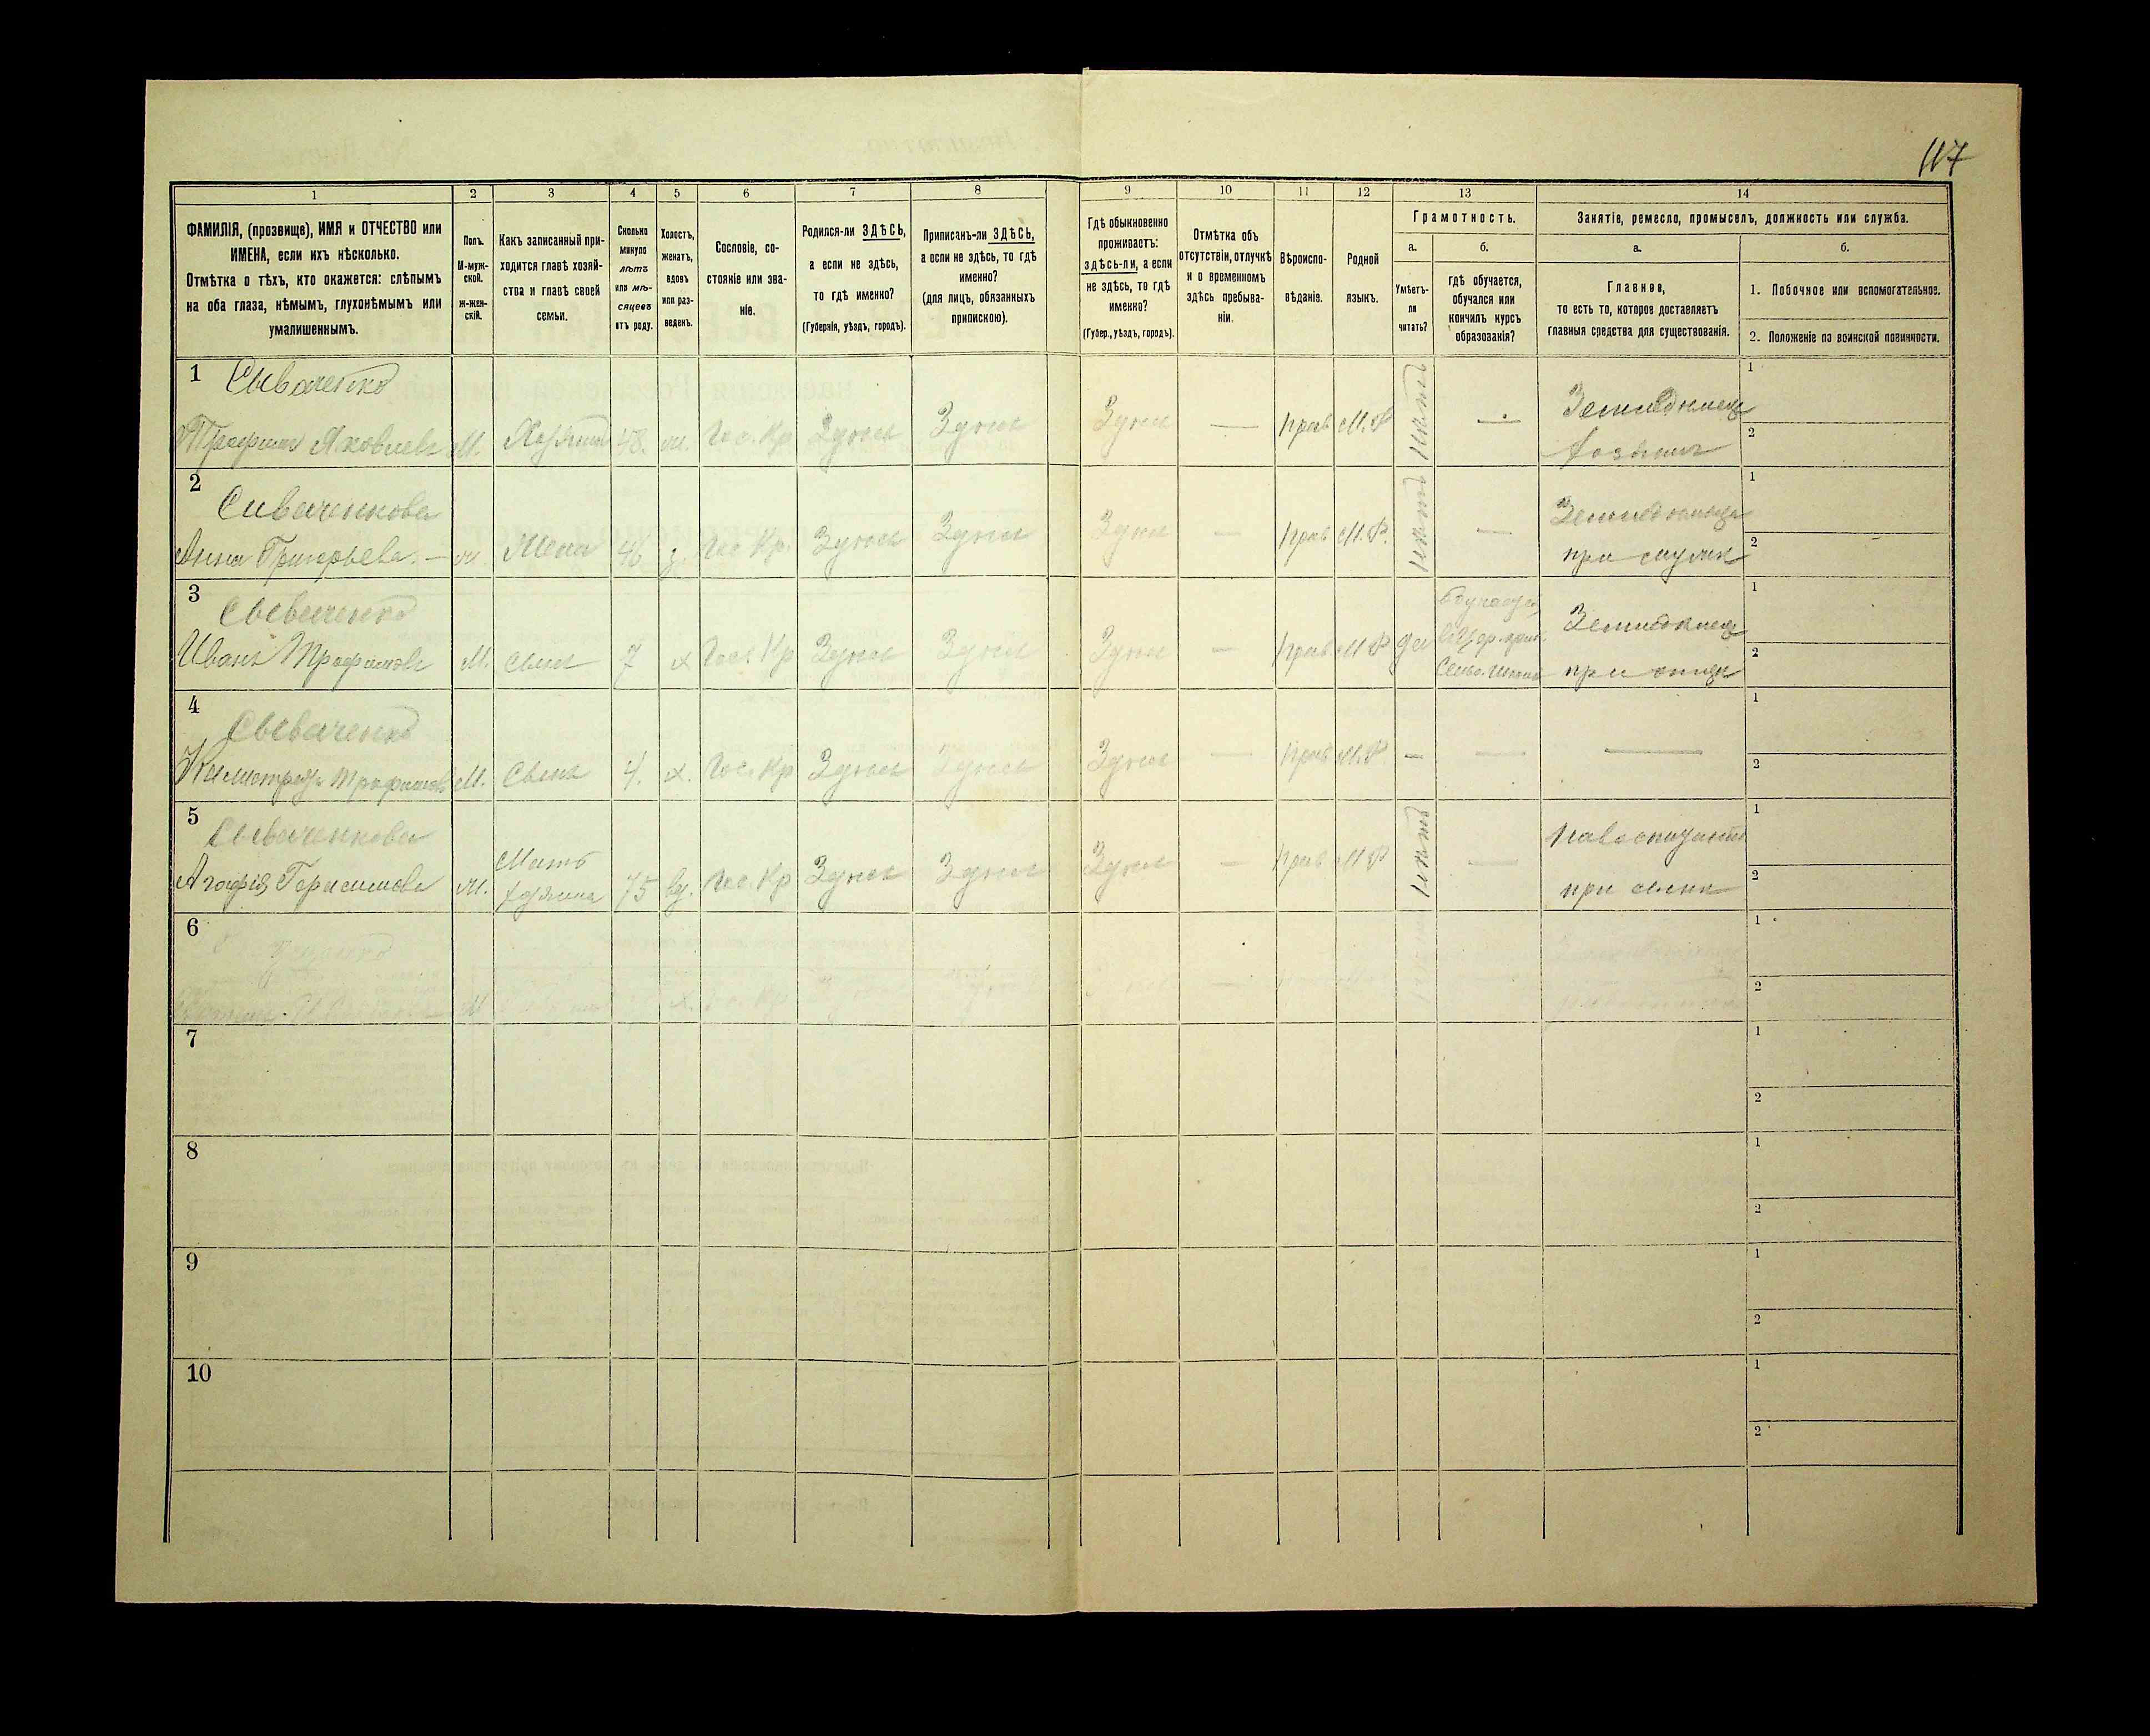 117
1 2 3 4 5 6 7 8 9 10 11 12 13 14
ФАМИЛІЯ, (прозвище), ИМЯ и ОТЧЕСТВО или
ИМЕНА, если ихъ нѣсколько.
Отмѣтка о тѣхъ, кто окажется: слѣпымъ
на оба глаза, нѣмымъ, глухонѣмымъ или
умалишеннымъ.
Полъ.
М-муж-
ской.
ж-жен-
скій.
Какъ записанный при-
ходится главѣ хозяй-
ства и главѣ своей
семьи.
Сколько
минуло
лѣтъ
или мѣ-
сяцевъ
отъ роду.
Холостъ,
женатъ,
вдовъ
или раз-
веденъ.
Сословіе, со-
стояніе или зва-
ніе.
Родился-ли ЗДѢСЬ,
а если не здѣсь,
то гдѣ именно?
(Губернія, уѣздъ, городъ).
Приписанъ-ли ЗДѢСЬ,
а если не здѣсь, то гдѣ
именно?
(для лицъ, обязанныхъ
припискою).
Гдѣ обыкновенно
проживаетъ:
здѣсь-ли, а если
не здѣсь, то гдѣ
именно?
(Губер., уѣздъ, городъ).
Отмѣтка объ
отсутствіи, отлучкѣ
и о временномъ
здѣсь пребыва-
ніи.
Вѣроиспо-
вѣданіе.
Родной
языкъ.
Грамотность.
а.
Умѣетъ-
ли
читать?
б.
гдѣ обучается,
обучался или
кончилъ курсъ
образованія?
Занятіе, ремесло, промыселъ, должность или служба.
а.
Главное,
то есть то, которое доставляетъ
главныя средства для существованія.
б.
1. Побочное или вспомогательное.
2. Положеніе по воинской повинности.
1 Сываченко
Трофимъ Яковлевъ М. Хозяинъ 48. ж. Гос. Кр Здѣсь Здѣсь Здѣсь — Прав М.Р нѣтъ — Земледѣлецъ
хозяинъ
1
2
2 Сиваченкова
Анна Григорьева. — ж Жена 46 з. Гос Кр. Здѣсь Здѣсь Здѣсь — Прав М.Р. нѣтъ — Земледѣлица
при мужѣ
1
2
3 Сываченко
Иванъ Трофимовъ М. сынъ 7 х Гос. Кр Здѣсь Здѣсь Здѣсь — Прав М Р да
Земледѣлецъ
при отцѣ
1
2
4 Сываченко
Трофимовъ М. Сынъ 4. х. Гос. Кр Здѣсь Здѣсь Здѣсь — Прав М.Р. — — —
1
2
5 Сываченкова
Агафія Герасимова ж. Мать
хозяина 75 вд. Гос. Кр Здѣсь Здѣсь Здѣсь — Прав М Р нѣтъ —
при сынѣ
1
2
6
М х. Гос. Кр —
1
2
7
1
2
8
1
2
9
1
2
10
1
2